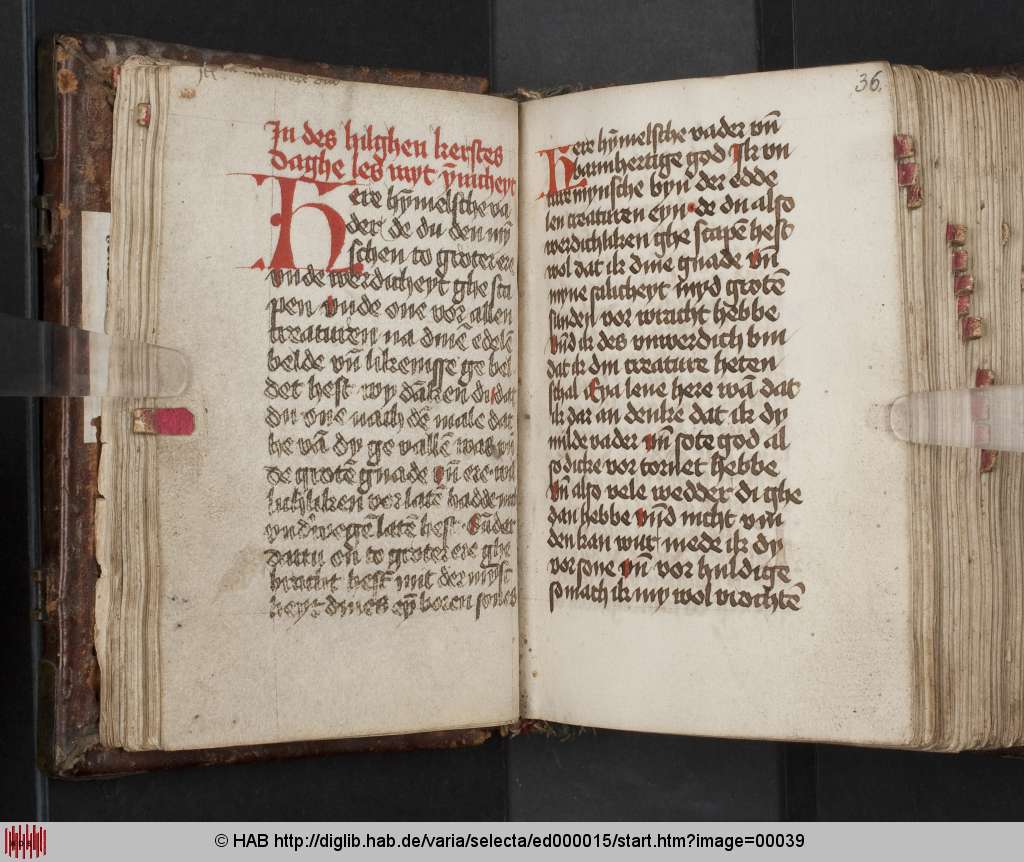 In des hilghen kerstes
daghe les myt ynicheyt
Here hymelsche va
der de du den my
schen to groter ere
vnde werdicheyt ghe sca
pen vnde one vor allen
creaturen na dinē edelē
belde vn̄ likenisse ge bel
det hest wy dāken di dat
du one nach dē male dat
he vā dy ge vallē was vn̄
de grotē gnade vn̄ ere
liken vor latē hadde
wegē latē hest sūder
on to groter ere ghe
bracht hest mit der mysc
heyt dines eȳ boren sones
36.
Here hȳmelsche vader vn̄
barmhertige god Ik vn
ture mynsche byn der edde
len creaturen eyn de du also
werdichliken ghe scapē hest
wol dat ik dine gnade vn̄
myne salicheyt m̄yd grotē
sunden vor wracht hebbe
vn̄d ik des vnwerdich bin
dat ik din creature heten
schal Eya leue here wā dat
ik dar an denke dat ik dy
milde vader vn̄ sote god al
so dicke vor tornet hebbe
vn̄ also vele wedder di ghe
dan hebbe vn̄d nicht vin
den kan wur mede ik dy
vor sone vn̄ vor huldige
so mach ik my wol vrochtē
© HAB http://diglib.hab.de/varia/selecta/ed000015/start.htm?image=00039